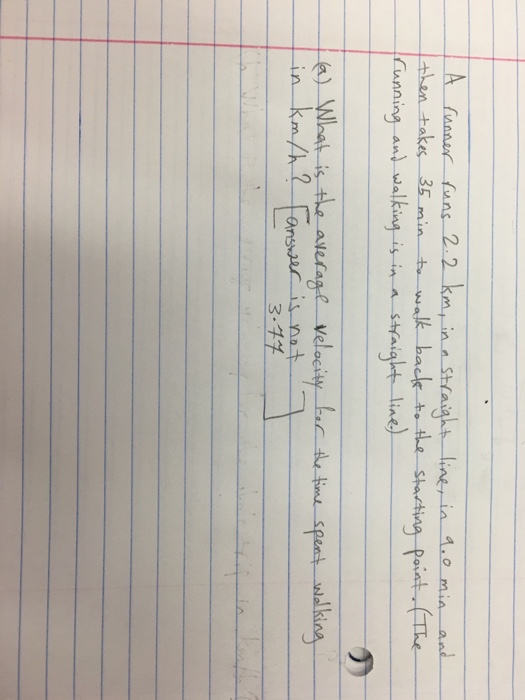 A runner runs 2.2 km, in a straight line, in 9.0 min and
then takes 35 min to walk back to the starting point. (The
running and walking is in a straight line.)
(a) What is the average velocity for the time spent walking
in km/h? [answer is not
3.77]